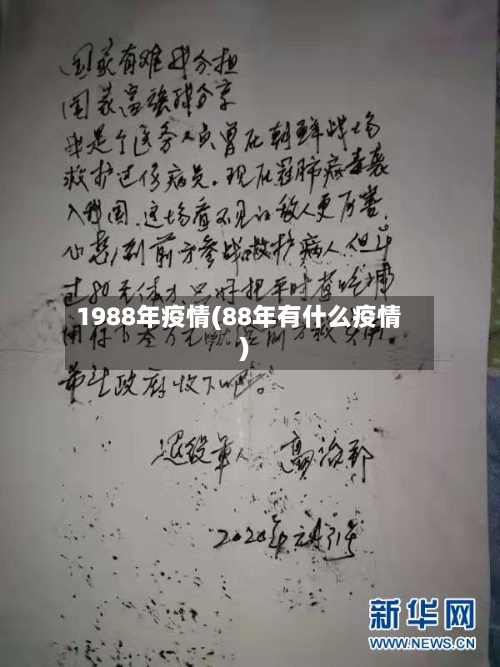 国家有难我分担
国家富强我分享
我是个医务人员曾在朝鲜战场
救护过伤病员。现在冠肺病毒袭
入我国。这场看不见的敌人更厉害。
心想到前方参战救护病人但年
过80无体力只好把平时省吃
1988年疫情(88年有什么疫情
)
希望政府收下吧。
退役军人 高治郅
2020年元月31号
新华网
WWW.NEWS.CN